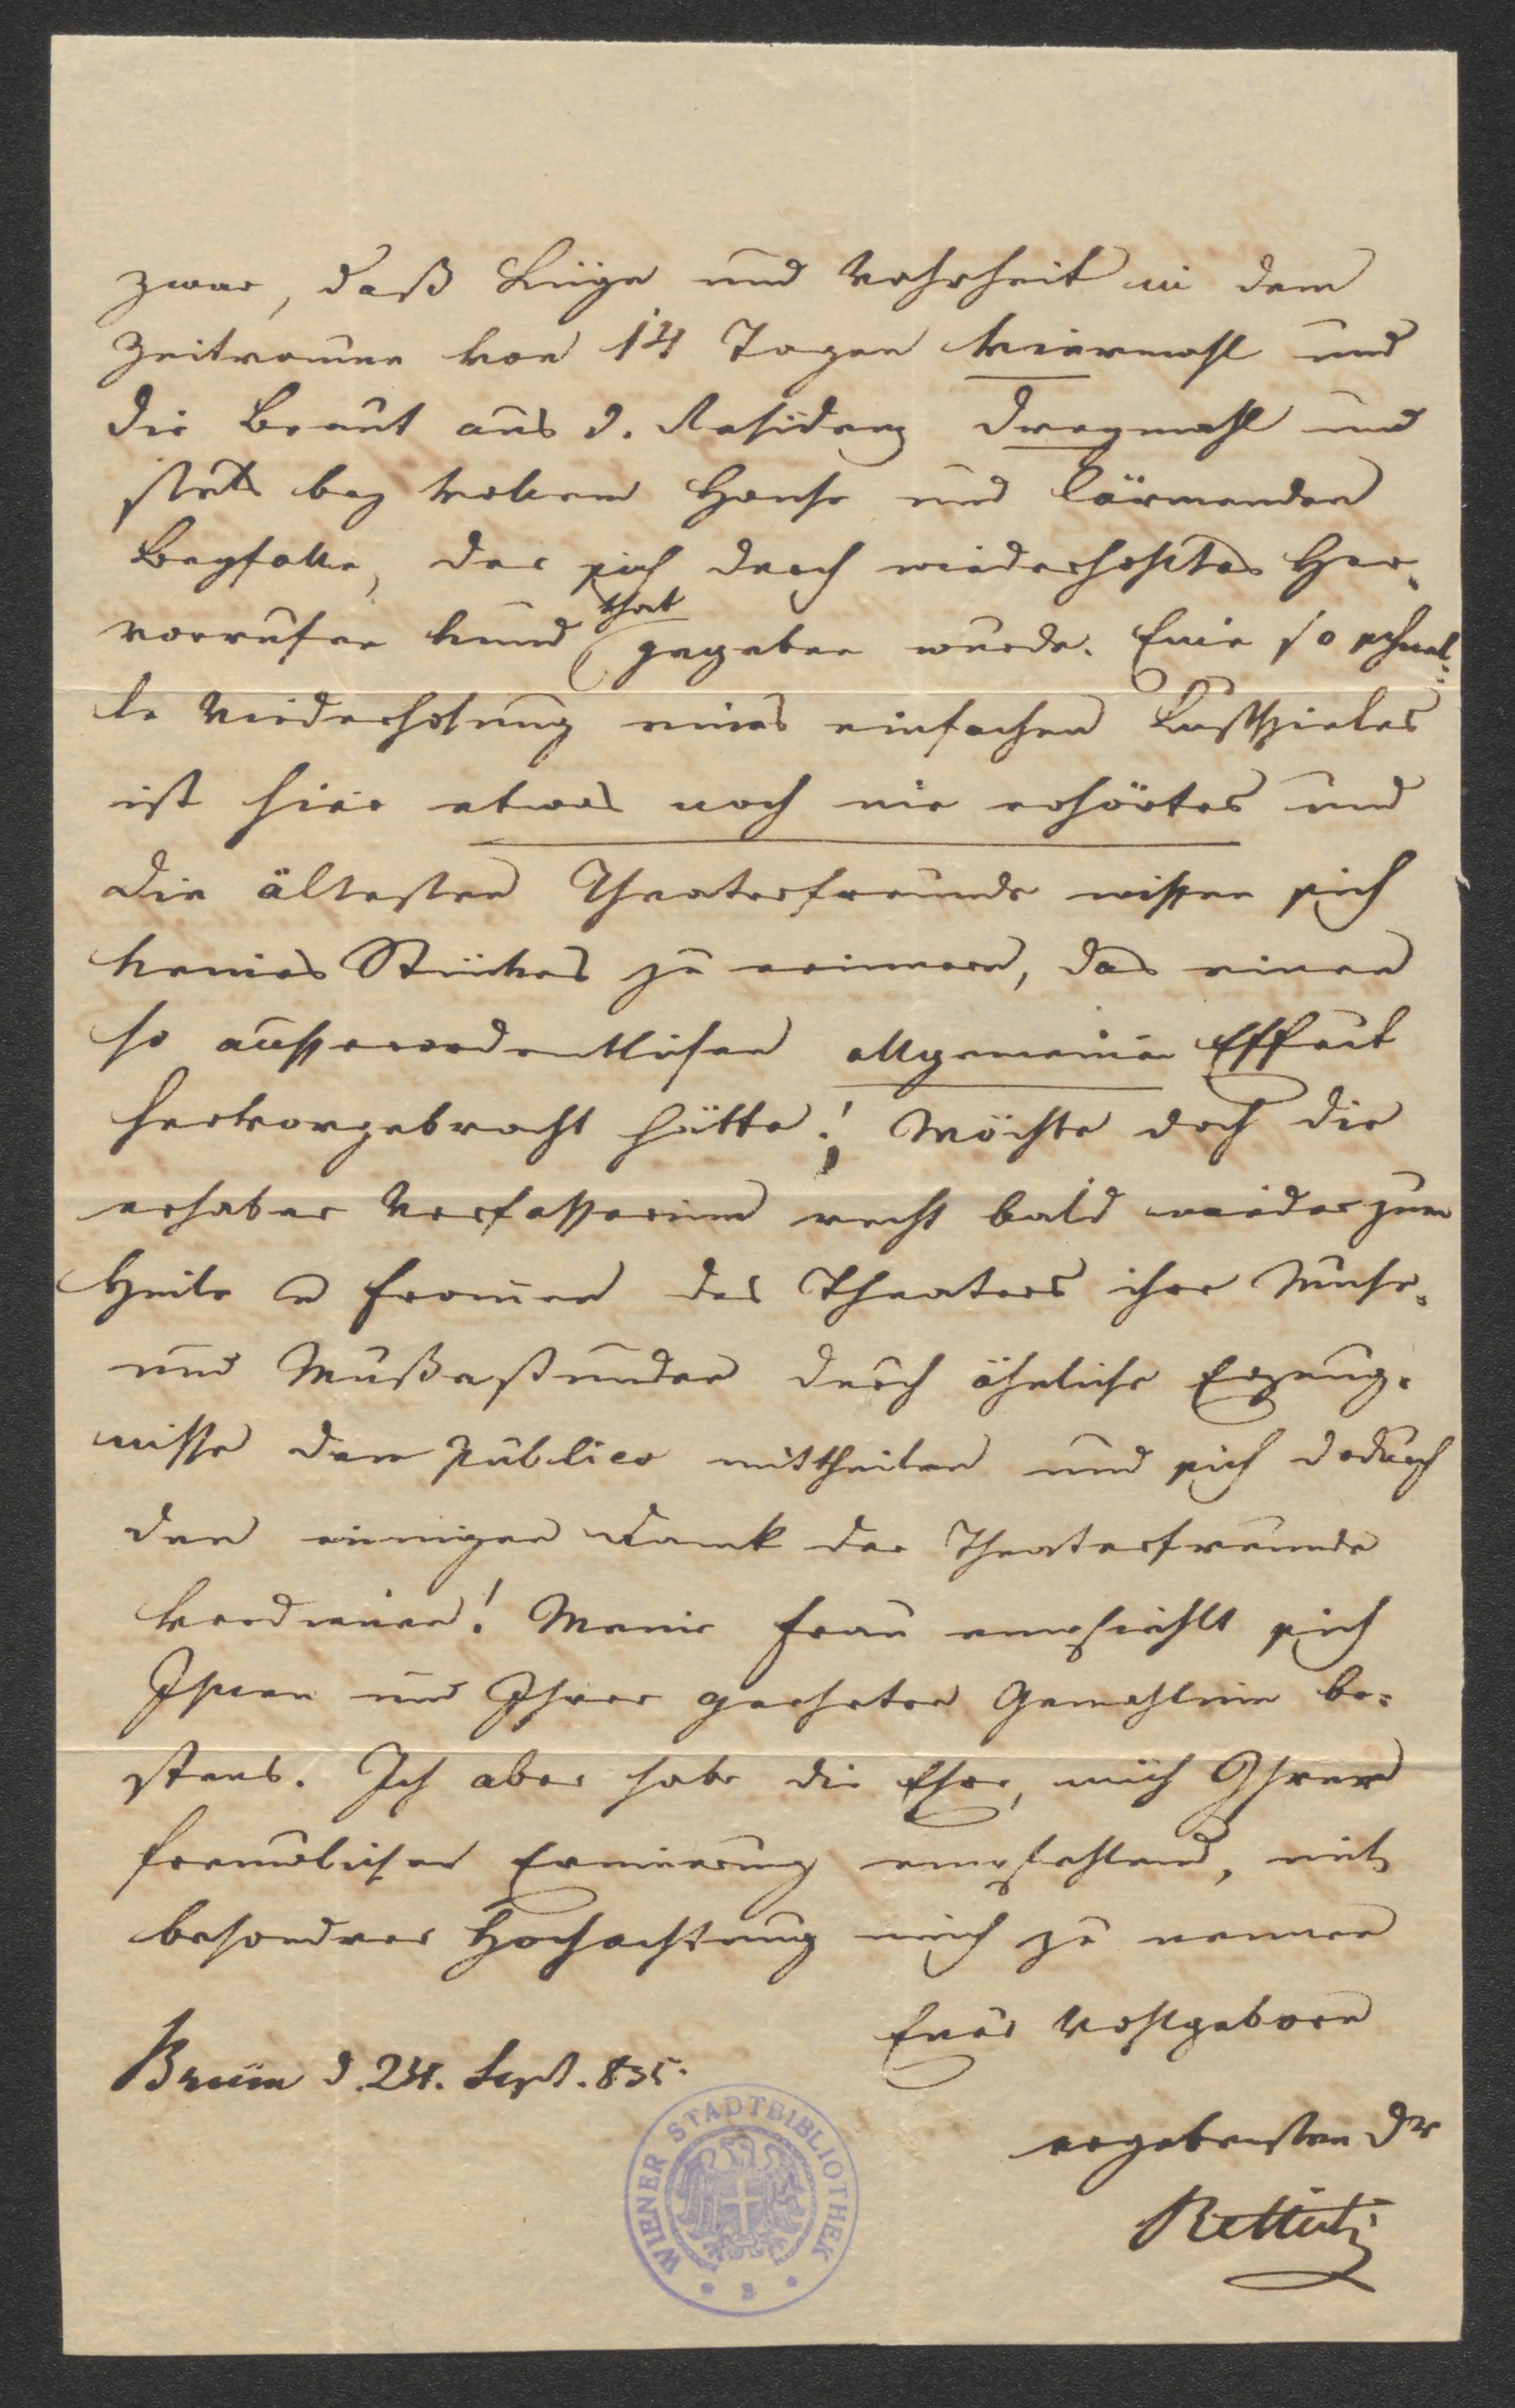 zwar, daß Lüge und Wahrheit in dem
Zeitraume von 14 Tagen viermahl und
die Braut aus d. Residenz dreymahl und
stets bey vollem Hause und lärmenden
Beyfalle, der sich durch wiederhohltes Her-
vorrufen kund that gegeben wurde. Eine so schnel-
le Wiederholung eines einfachen Lustspieles
ist hier etwas noch nie erhörtes und
die ältesten Theaterfreunde wissen sich
keines Stückes zu erinnern, das einen
so ausserordentlichen allgemeinen Effect
hervorgebracht hätte! Möchte doch die
erhabne Verfasserinn recht bald wieder zum
Heile u Frommen des Theaters ihre Muse-
und Mußestunden durch ähnliche Erzeug-
nisse dem Publico mittheilen und sich dadurch
den innigen Dank der Theaterfreunde
verdienen! Meine Frau empfiehlt sich
Ihnen und Ihrer geehrten Gemahlinn be-
stens. Ich aber habe die Ehre, mich Ihrer
freundlichen Erinnerung empfehlend, mit
besondrer Hochachtung mich zu nennen
Euer Wohlgeborn
Brünn d. 24. Sept. 835.
ergebensten Dr
WIENER STADTBIBLIOTHEK